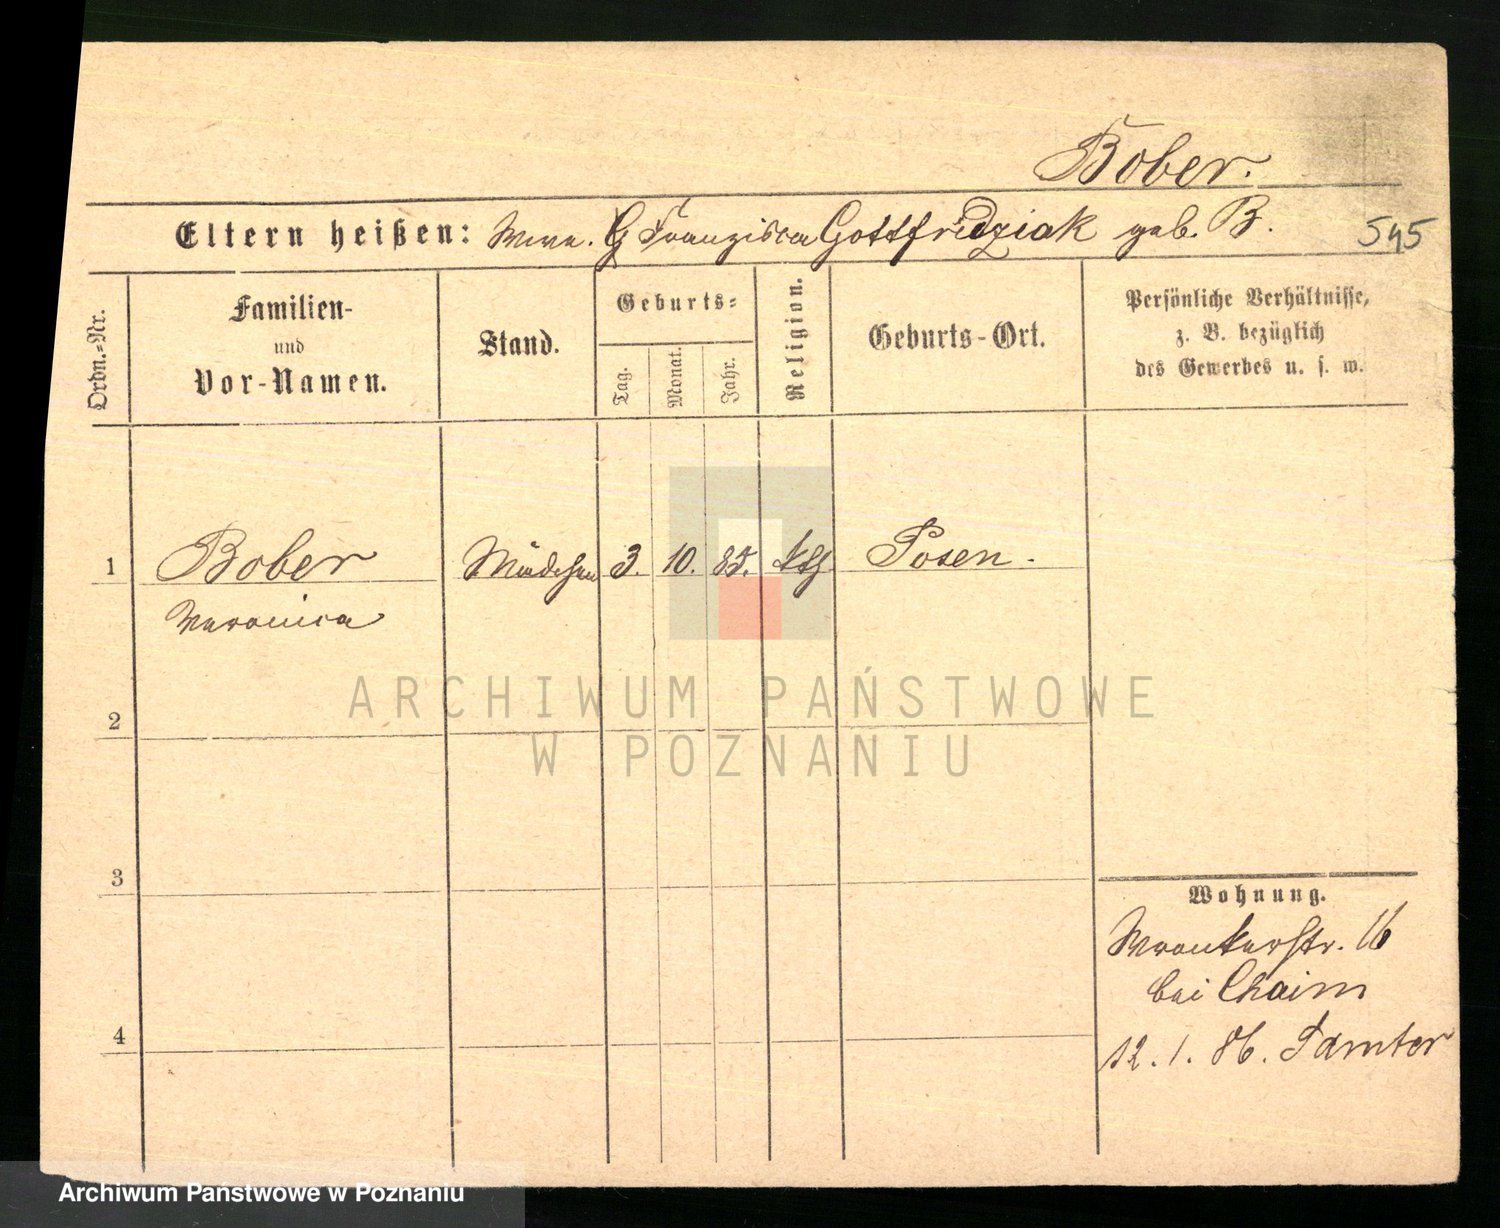 Bober.
Eltern heißen: Wwe. G Franzisca Gottfridziak geb. B.
545
Ordn.-Nr.
Familien-
und
Vor-Namen.
Stand.
Geburts-
Tag.
Monat.
Jahr.
Religion.
Geburts-Ort.
Persönliche Verhältnisse,
z. B. bezüglich
des Gewerbes u. s. w.
1 Bober Mädchen 3. 10. 85. kth Posen.
Veronica
2
3
4
Wohnung.
Wronkerstr. 16
bei Chaim
12. 1. 86. Samter
ARCHIWUM PAŃSTWOWE
W POZNANIU
Archiwum Państwowe w Poznaniu